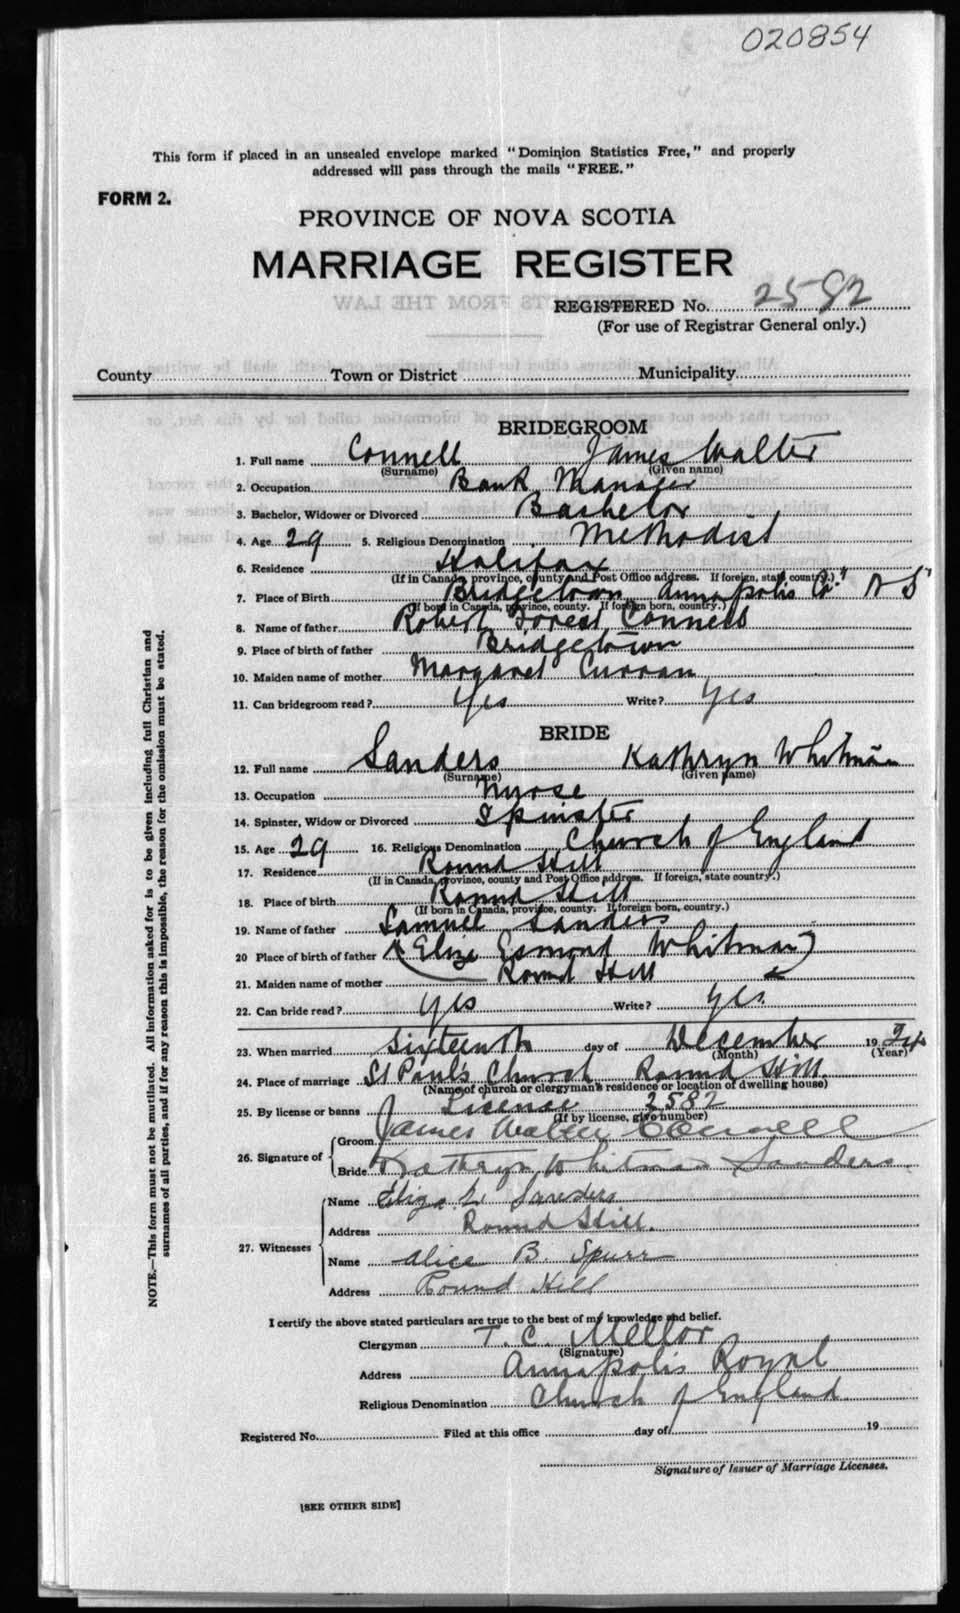 020854
This form if placed in an unsealed envelope marked "Dominion Statistics Free," and properly
addressed will pass through the mails "FREE."
FORM 2.
PROVINCE OF NOVA SCOTIA
MARRIAGE REGISTER
REGISTERED No. 2582
(For use of Registrar General only.)
County Town or District Municipality
BRIDEGROOM
1. Full name Connell James Walter
(Surname) (Given name)
2. Occupation Bank Manager
3. Bachelor, Widower or Divorced Bachelor
4. Age 29 5. Religious Denomination Methodist
6. Residence Halifax
(If in Canada, province, county and Post Office address. If foreign, state country.)
7. Place of Birth Bridgetown Annapolis Co. N S
(If born in Canada, province, county. If foreign born, country.)
8. Name of father Robert Forest Connell
9. Place of birth of father Bridgetown
10. Maiden name of mother Margaret Curran
11. Can bridegroom read? Yes Write? Yes
BRIDE
12. Full name Sanders Kathryn Whitman
(Surname) (Given name)
13. Occupation Nurse
14. Spinster, Widow or Divorced Spinster
15. Age 29 16. Religious Denomination Church of England
17. Residence Round Hill
(If in Canada, province, county and Post Office address. If foreign, state country.)
18. Place of birth Round Hill
(If born in Canada, province, county. If foreign born, country.)
19. Name of father Samuel Sanders
20 Place of birth of father Eliza Esmond Whitman
21. Maiden name of mother Round Hill
22. Can bride read? yes Write? yes.
23. When married Sixteenth day of December 1924
(Month) (Year)
24. Place of marriage St Paul's Church Round Hill
(Name of church or clergyman's residence or location of dwelling house)
25. By license or banns License 2582
(If by license, give number)
26. Signature of
Groom James Walter Connell
Bride Kathryn Whitman Sanders.
27. Witnesses
Name Eliza E. Sanders
Address Round Hill.
Name Alice B. Spurr
Address Round Hill
I certify the above stated particulars are true to the best of my knowledge and belief.
Clergyman T. C. Mellor
(Signature)
Address Annapolis Royal
Religious Denomination Church of England
Registered No. Filed at this office day of 19
Signature of Issuer of Marriage Licenses.
[SEE OTHER SIDE]
NOTE.—This form must not be mutilated. All information asked for is to be given including full Christian and
surnames of all parties, and if for any reason this is impossible, the reason for the omission must be stated.